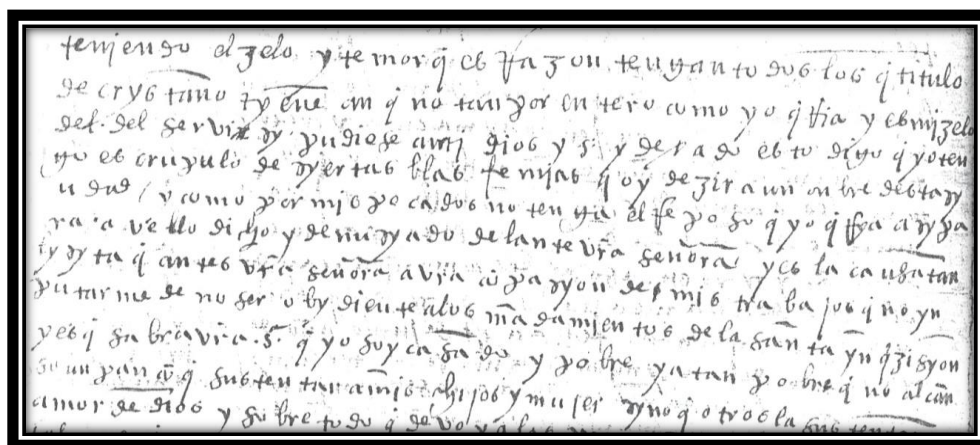 teniendo el zelo y temor q̄ es rrazon tengan todos los q̄ titulo
de crystano tyene an q̄ no tan por entero como yo q̄rria y es mi zelo
del del servir sy pudiese a mi dios y s. y dexado esto digo q̄ yo ten
go escrupulo de syertas blasfemias q̄ oy dezir a un onbre desta sy
udad / y como por mis pecados no tenga el reposo q̄ yo q̄rria asy pa
ra avello dicho y denusyado delante vr̄a señora y es la causa tan
lysyta q̄ antes vr̄a señora avra cōpasyon de mis trabajos q̄ no yn
putarme de no ser obydiente a los mādamientos de la sāta ynq̄zisyon
y es q̄ sabra vr̄a s. q̄ yo soy casado y pobre y a tan pobre q̄ no alcan
so un pan cō q̄ sustentar a mis hijos y mujer syno q̄ otros la sustentan
amor de dios y sobre todo q̄ devo